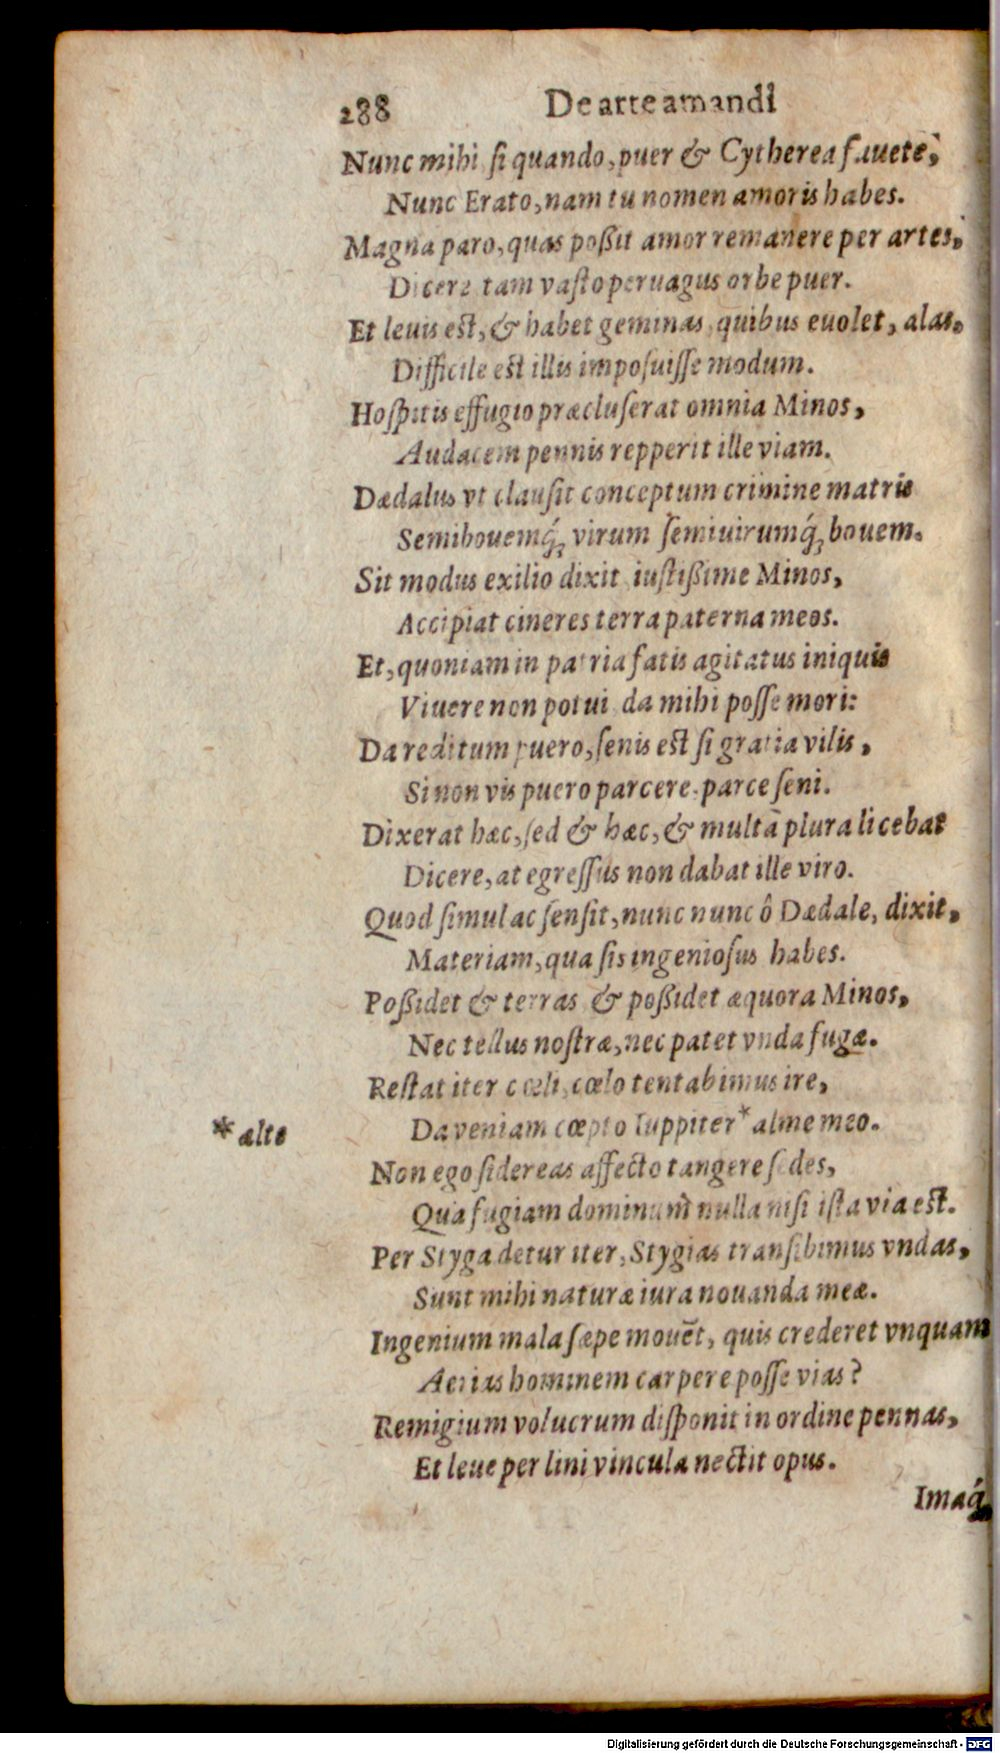 288 De arte amandi
Nunc mihi si quando, puer & Cytherea fauete,
Nunc Erato, nam tu nomen amoris habes.
Magna paro, quas poßit amor remanere per artes,
Dicere tam vasto peruagus orbe puer.
Et leuis est, & habet geminas quibus euolet, alas.
Difficile est illis imposuisse modum.
Hospitis effugio præcluserat omnia Minos,
Audacem pennis repperit ille viam.
Dædalus vt clausit conceptum crimine matris
Semibouemq́; virum semiuirumq́; bouem.
Sit modus exilio dixit iustißime Minos,
Accipiat cineres terra paterna meos.
Et, quoniam in patria fatis agitatus iniquis
Viuere non potui da mihi posse mori:
Da reditum puero, senis est si gratia vilis,
Si non vis puero parcere, parce seni.
Dixerat hæc, sed & hæc, & multà plura licebat
Dicere, at egressus non dabat ille viro.
Quod simul ac sensit, nunc nunc ô Dædale, dixit,
Materiam, qua sis ingeniosus habes.
Poßidet & terras & poßidet æquora Minos,
Nec tellus nostræ, nec patet vnda fugæ.
Restat iter cœli, cœlo tentabimus ire,
Da veniam cœpto Iuppiter * alme meo.
* alte
Non ego sidereas affecto tangere sedes,
Qua fugiam dominum nulla nisi ista via est.
Per Styga detur iter, Stygias transibimus vndas,
Sunt mihi naturæ iura nouanda meæ.
Ingenium mala sæpe mouēt, quis crederet vnquam
Aerias hominem carpere posse vias?
Remigium volucrum disponit in ordine pennas,
Et leue per lini vincula nectit opus.
Imaq́;
Digitalisierung gefördert durch die Deutsche Forschungsgemeinschaft - DFG